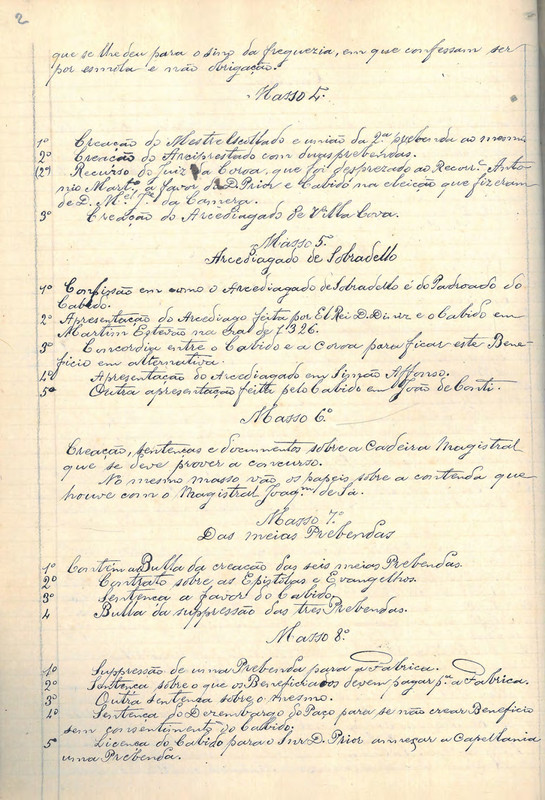 2
que se lhe deu para o sino da freguezia, em que confessam ser
por esmola e não obrigação.
Masso 4.
1º Creação do Mestreescollado e união da 2.ª prebenda ao mesmo
2º Creação do Arciprestado com duas prebendas.
(2º) Recurso do Juiz da Coroa, que foi desprezado ao Recorr.e Anto-
nio Mart.s, a favor do D. Prior e Cabido na eleição que fizeram
de D. M.el J.m da Camera.
3º Creação do Arcediagado de Villa Cova.
Masso 5.
Arcediagado de Sobradello
1º Confissão em como o Arcediagado de Sobradello é do Padroado do
Cabido.
2º Apresentação do Arcediago feita por El Rei D. Diniz e o Cabido em
Martim Estevão na Era de 1326.
3º Concordia entre o Cabido e a Coroa para ficar este Bene-
ficio em alternativa.
4º Apresentação do Arcediagado em Simão Affonso.
5º Outra apresentação feita pelo Cabido em João de Conti.
Masso 6º
Creação, sentenças e documentos sobre a Cadeira Magistral
que se deve prover a concurso.
No mesmo masso vão os papeis sobre a contenda que
houve com o Magistral Joaq.m de Sá.
Masso 7º
Das meias Prebendas
1º Contém a Bulla da creação das seis meias Prebendas.
2º Contrato sobre as Epistolas e Evangelhos.
3º Sentença a favor do Cabido.
4 Bulla da suppressão das tres Prebendas.
Masso 8º
1º Suppressão de uma Prebenda para a Fabrica.
2º Sentença sobre o que os Beneficiados devem pagar p.a a Fabrica.
3º Outra sentensa sobre o mesmo.
4º Sentença do Dezembargo do Paço para se não crear Beneficio
sem consentimento do Cabido.
5º Licença do Cabido para o Snr D. Prior annexar a Capellania
uma Prebenda.